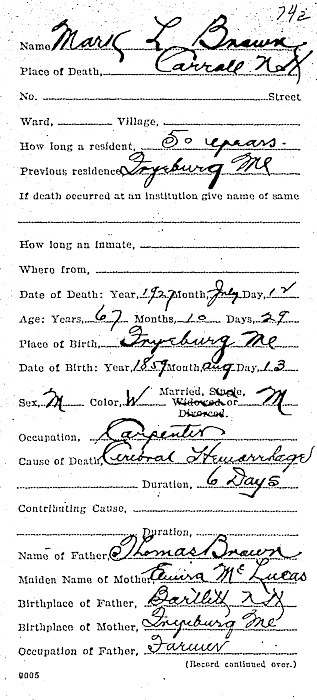 742
Name, Mark L Brown
Place of Death, Carroll N H
No. Street
Ward, Village,
How long a resident, 50 years.
Previous residence, Fryeburg Me
If death occurred at an institution give name of same
How long an inmate,
Where from,
Date of Death: Year, 1927 Month, July Day, 12
Age: Years, 67 Months, 10 Days, 29
Place of Birth, Fryeburg Me
Date of Birth: Year, 1859 Month Aug Day, 13
Married, Single,
Sex, M Color, W Widowed or M
Divorced.
Occupation, Carpenter
Cause of Death, Cerebral Hemorrhage
Duration, 6 Days
Contributing Cause,
Duration,
Name of Father, Thomas Brown
Maiden Name of Mother, Mc Lucas
Birthplace of Father, Bartlett N H
Birthplace of Mother, Fryeburg Me
Occupation of Father, Farmer
(Record continued over.)
9005